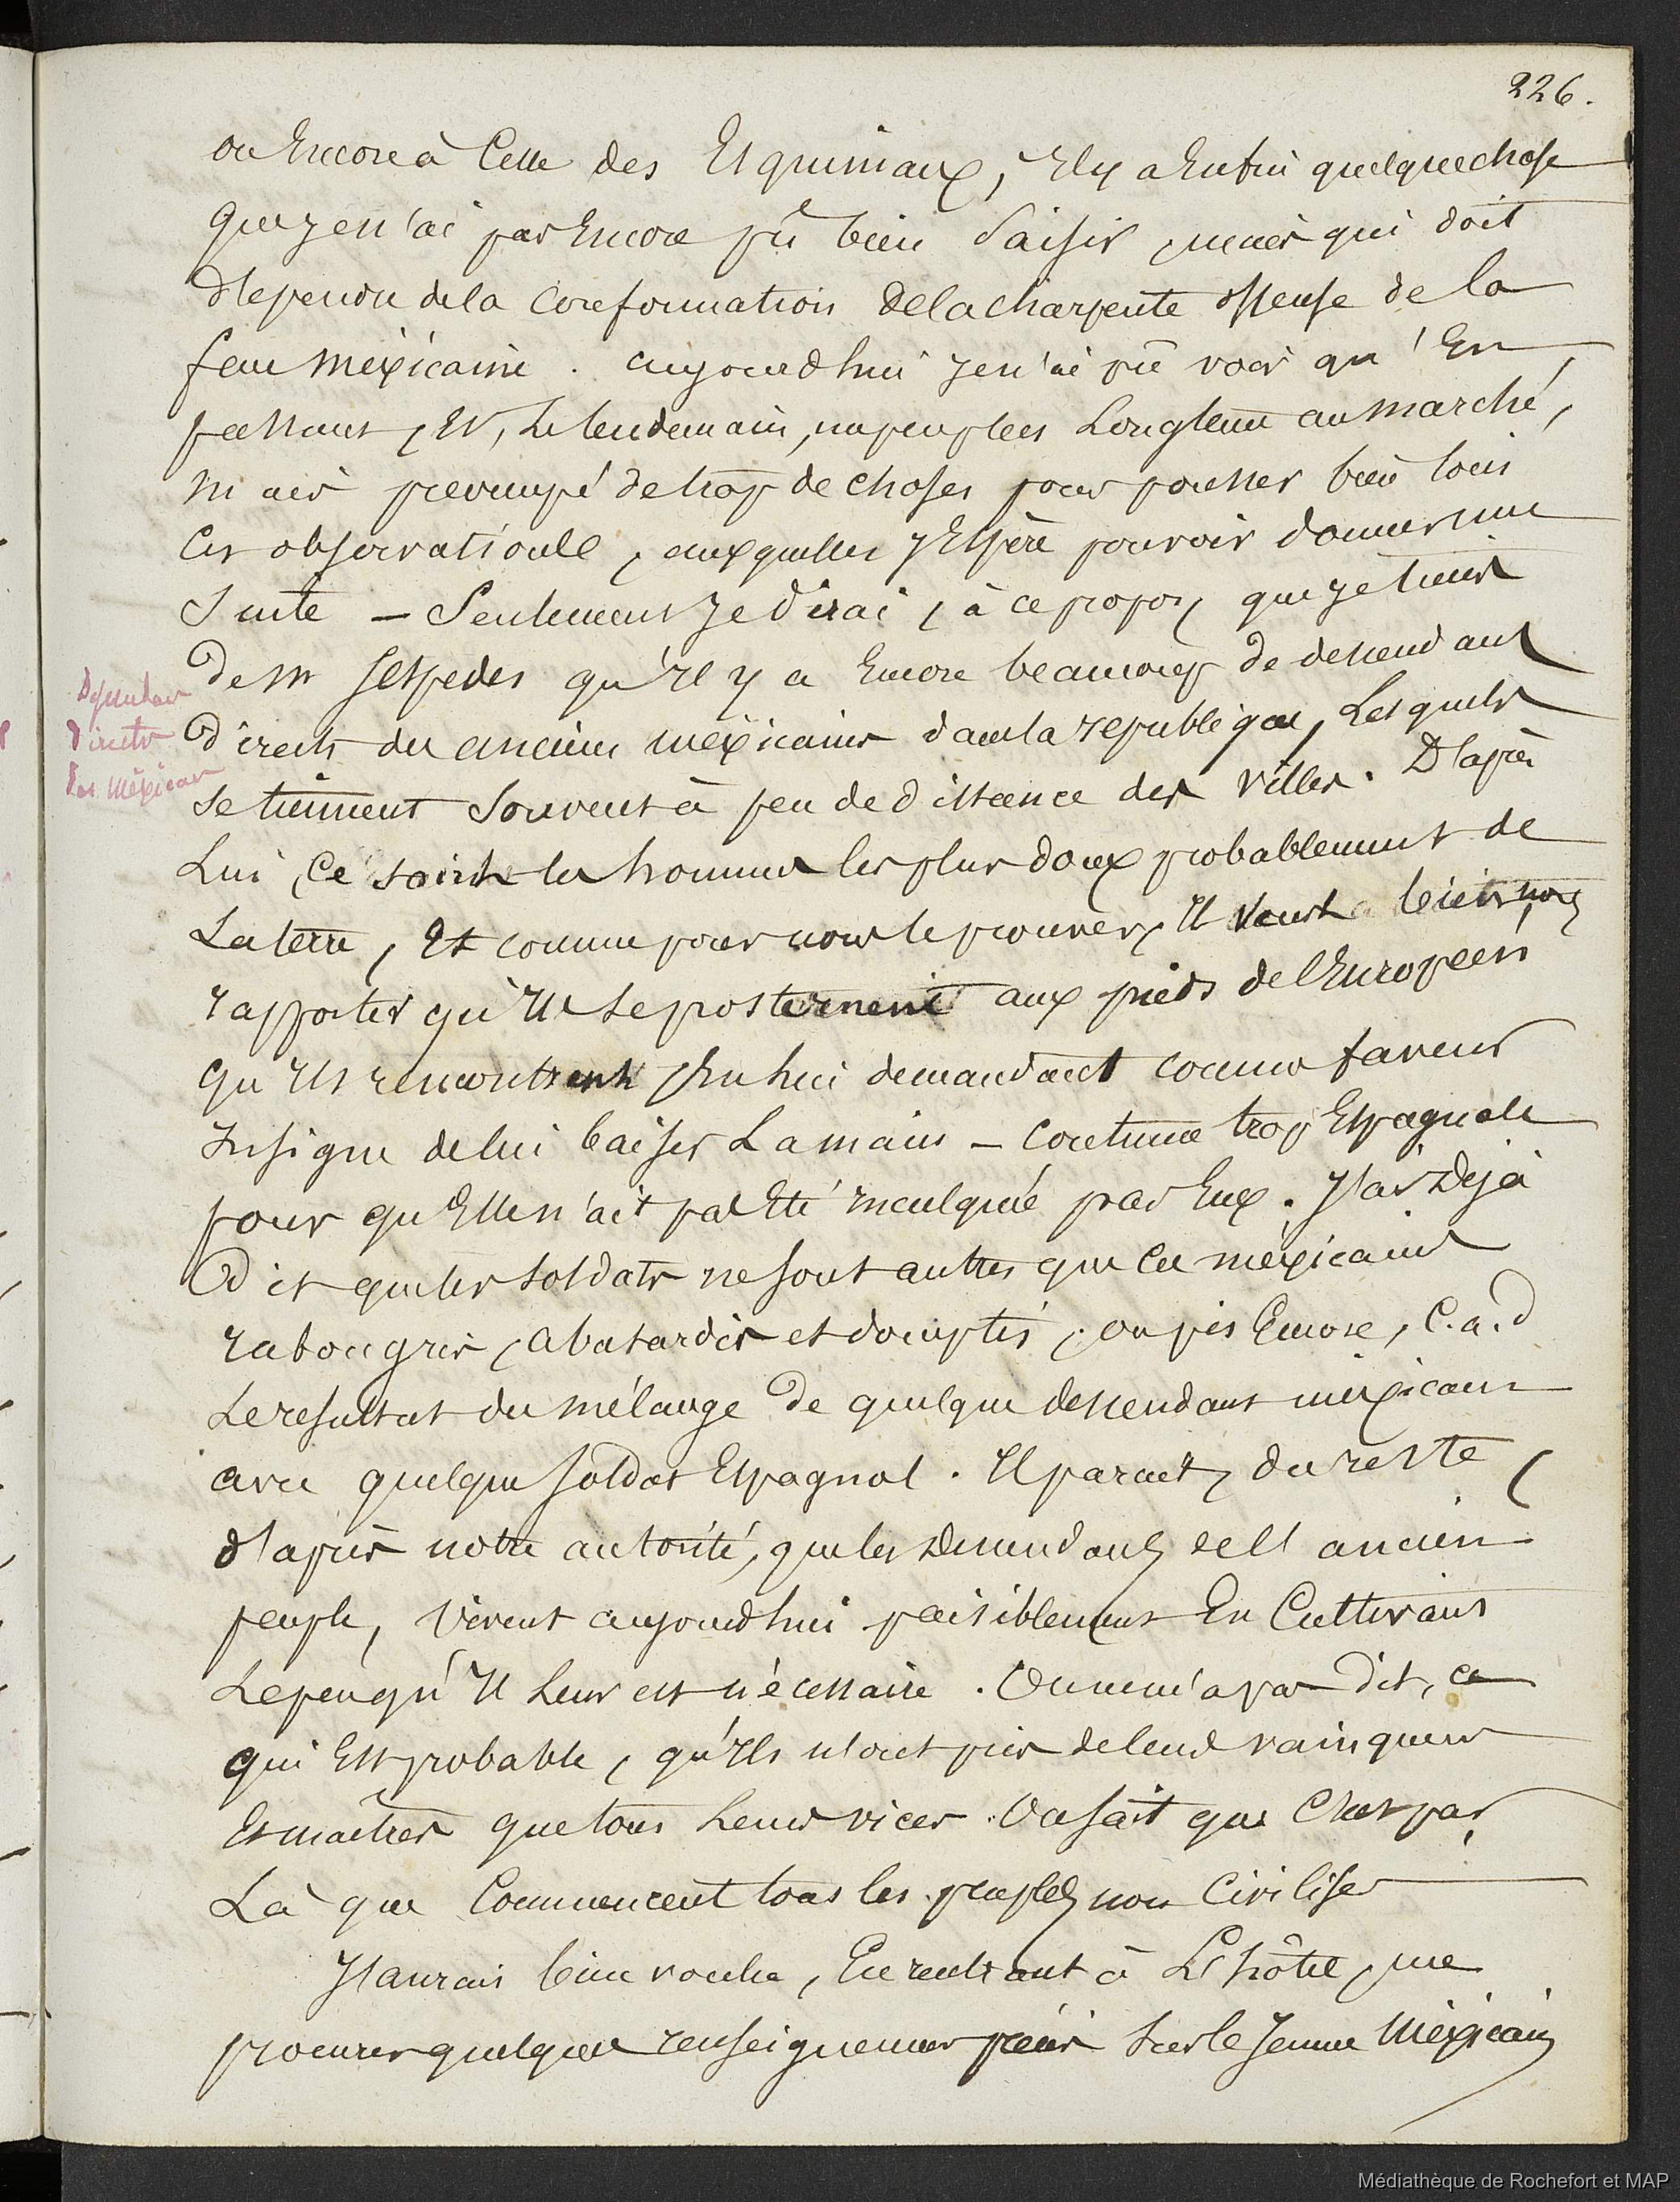 226.
ou Encore à Celle des Esquimaux, Il y a Enfin quelque chose
que je n'ai pas Encore pû bien saisir, mais qui doit
dependre de la conformation de la charpente osseuse de la
face mexicaine. aujourd'hui je n'ai pû voir qu'En
passant, et, Le lendemain, un peu plus Longtems au marché,
mais préoccupé de trop de choses pour pousser bien loin
ces observations, auxquelles j'Espère pouvoir donner une
suite – Seulement Je dirai, à ce propos, que je tiens
de Mr Sespedes qu'Il y a Encore beaucoup de descendants
directs des anciens mexicains dans la république, Lesquels
se tiennent souvent à peu de distance des villes. D'après
Lui, ce sont les hommes les plus doux probablement de
La terre, Et comme pour nous le prouver, Il veut bien nous
rapporter qu'Ils se prosternent aux pieds de l'Européen
qu'Ils rencontrent, En lui demandant comme faveur
Insigne de lui baiser La main – coutume trop Espagnole
pour qu'Elle n'ait pas Eté inculquée par Eux. J'ai Dejà
dit que les soldats ne sont autres que ces mexicains
rabougris, abatardis et domptés, ou pis Encore, C.a.d
Le resultat du mélange de quelque descendant mexicain
avec quelque soldat Espagnol. Il parait, du reste,
d'après notre autorité, que les descendans de l'ancien
peuple, vivent aujourd'hui paisiblement En Cultivant
Le peu qu'Il Leur est nécessaire. On ne m'a pas dit, ce
qui Est probable, qu'Ils n'ont pris de leurs vainqueurs
Et maîtres que tous Leurs vices. On sait que C'est par
Là que Commencent tous les peuples non Civilisés
J'aurais bien voulu, En rentrant à L'hôtel, me
procurer quelques renseignemens sur le Jeune Mexicain
Descendans
directs
des Mexicains
Médiathèque de Rochefort et MAP